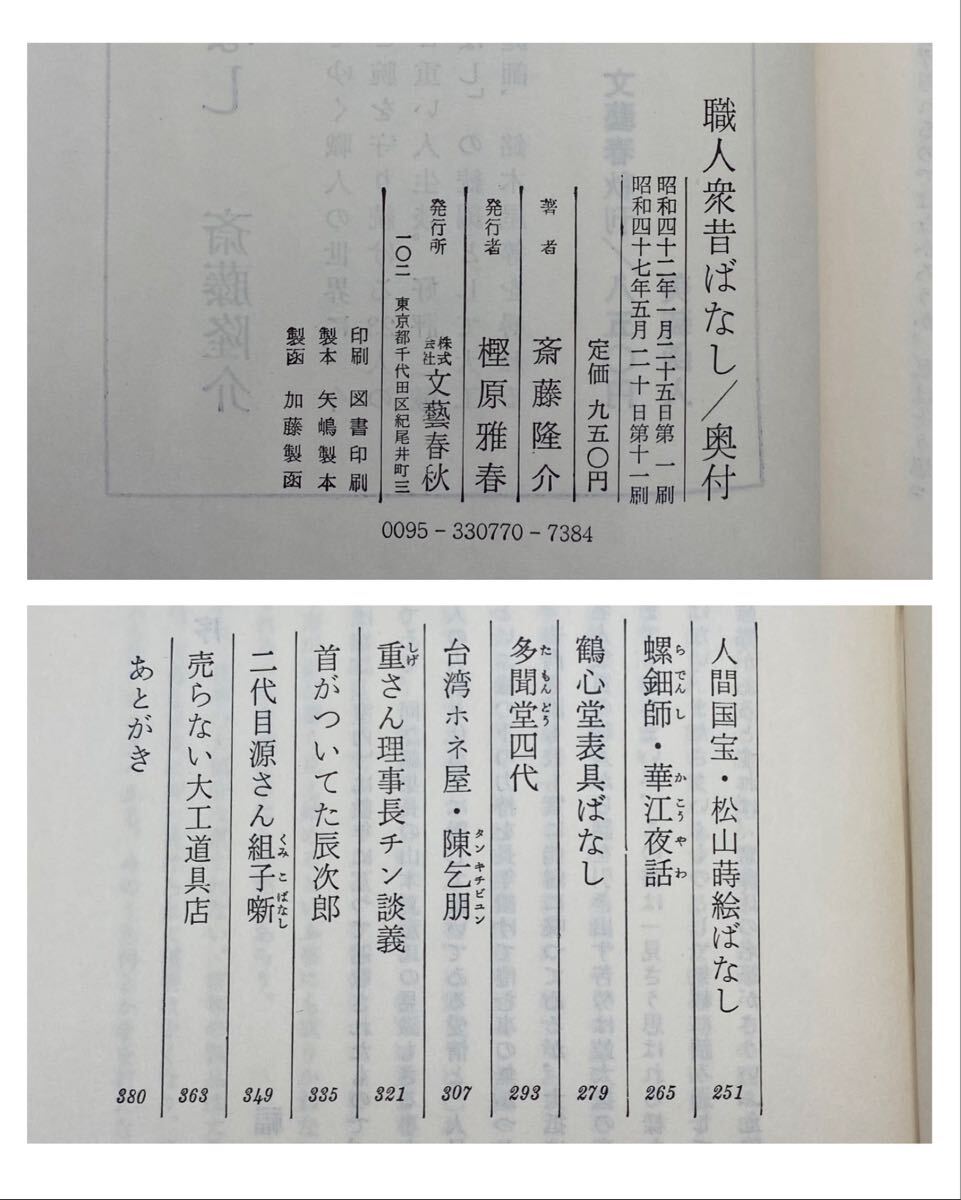 職人衆昔ばなし/奥付
昭和四十二年一月二十五日第一刷
昭和四十七年五月二十日第十一刷
定価 九五〇円
著者 斎藤隆介
発行者 樫原雅春
発行所 株式会社文藝春秋
一〇二 東京都千代田区紀尾井町三
印刷 図書印刷
製本 矢嶋製本
製函 加藤製函
0095-330770-7384
人間国宝・松山蒔絵ばなし 251
螺鈿師・華江夜話 265
らでんし かこうやわ
鶴心堂表具ばなし 279
多聞堂四代 293
たもんどう
台湾ホネ屋・陳乞朋 307
タンキチビュン
重さん理事長チン談義 321
しげ
首がついてた辰次郎 335
二代目源さん組子噺 349
くみこばなし
売らない大工道具店 363
あとがき 380